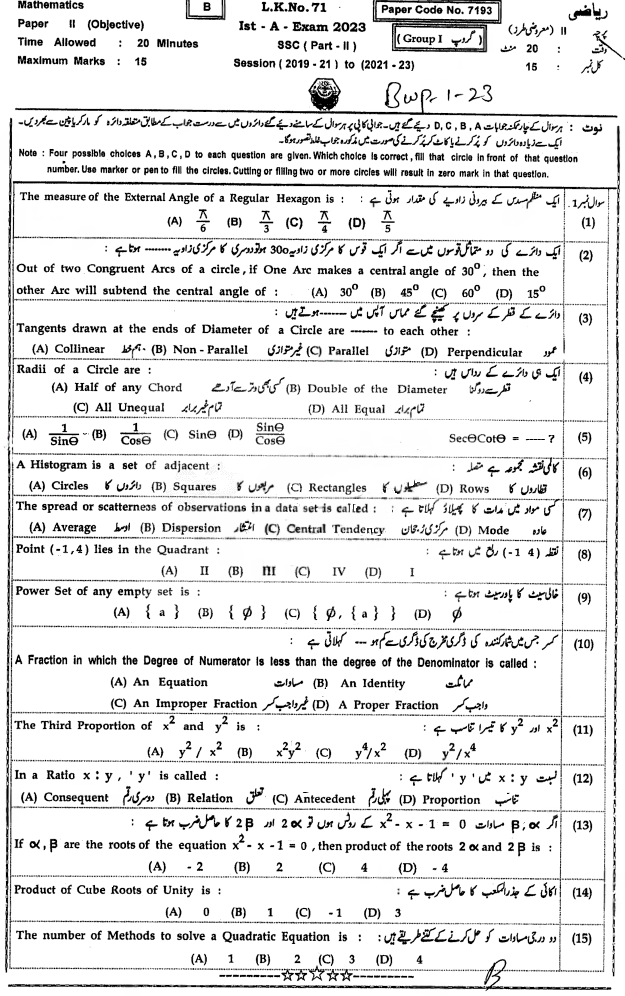 Mathematics B L.K.No. 71 Paper Code No. 7193 ریاضی
Paper II (Objective) Ist - A - Exam 2023 پرچہ II (معروضی طرز)
Time Allowed : 20 Minutes SSC (Part - II) (Group I گروپ) وقت : 20 منٹ
Maximum Marks : 15 Session (2019 - 21) to (2021 - 23) کل نمبر : 15
Bwp-1-23
نوٹ : ہر سوال کے چار ممکنہ جوابات D, C, B, A دیئے گئے ہیں۔ جوابی کاپی پر ہر سوال کے سامنے دیئے گئے دائروں میں سے درست جواب کے مطابق متعلقہ دائرہ کو مارکر یا پین سے بھر دیں۔
ایک سے زیادہ دائروں کو پُر کرنے یا کاٹ کر پُر کرنے کی صورت میں مذکورہ جواب غلط تصور ہوگا۔
Note : Four possible choices A, B, C, D to each question are given. Which choice is correct, fill that circle in front of that question
number. Use marker or pen to fill the circles. Cutting or filling two or more circles will result in zero mark in that question.
سوال نمبر 1
The measure of the External Angle of a Regular Hexagon is : ایک منظم مسدس کے بیرونی زاویے کی مقدار ہوتی ہے :
(A) π/6 (B) π/3 (C) π/4 (D) π/5 (1)
ایک دائرے کی دو متماثل قوسوں میں سے اگر ایک قوس کا مرکزی زاویہ 30o ہو تو دوسری کا مرکزی زاویہ -------- ہوتا ہے : (2)
Out of two Congruent Arcs of a circle, if One Arc makes a central angle of 30°, then the
other Arc will subtend the central angle of : (A) 30° (B) 45° (C) 60° (D) 15°
دائرے کے قطر کے سروں پر کھینچے گئے مماس آپس میں -------ہوتے ہیں : (3)
Tangents drawn at the ends of Diameter of a Circle are ------ to each other :
(A) Collinear ہم خط (B) Non - Parallel غیر متوازی (C) Parallel متوازی (D) Perpendicular عمود
Radii of a Circle are : ایک ہی دائرے کے رداس ہیں : (4)
(A) Half of any Chord کسی بھی وتر سے آدھے (B) Double of the Diameter قطر سے دوگنا
(C) All Unequal تمام غیر برابر (D) All Equal تمام برابر
(A) 1/SinΘ (B) 1/CosΘ (C) SinΘ (D) SinΘ/CosΘ SecΘCotΘ = ---- ? (5)
A Histogram is a set of adjacent : کالمی نقشہ مجموعہ ہے متصلہ : (6)
(A) Circles دائروں کا (B) Squares مربعوں کا (C) Rectangles مستطیلوں کا (D) Rows قطاروں کا
The spread or scatterness of observations in a data set is called : کسی مواد میں مدات کا پھیلاؤ کہلاتا ہے : (7)
(A) Average اوسط (B) Dispersion انتشار (C) Central Tendency مرکزی رُجحان (D) Mode عادہ
Point (-1,4) lies in the Quadrant : نقطہ (-1 4) ربع میں ہوتا ہے : (8)
(A) II (B) III (C) IV (D) I
Power Set of any empty set is : خالی سیٹ کا پاور سیٹ ہوتا ہے : (9)
(A) { a } (B) { ϕ } (C) { ϕ, { a } } (D) ϕ
کسر جس میں شمار کنندہ کی ڈگری مخرج کی ڈگری سے کم ہو --- کہلاتی ہے : (10)
A Fraction in which the Degree of Numerator is less than the degree of the Denominator is called :
(A) An Equation مساوات (B) An Identity مماثلت
(C) An Improper Fraction غیر واجب کسر (D) A Proper Fraction واجب کسر
The Third Proportion of x² and y² is : x² اور y² کا تیسرا تناسب ہے : (11)
(A) y² / x² (B) x²y² (C) y⁴/x² (D) y²/x⁴
In a Ratio x : y , 'y' is called : نسبت x : y میں 'y' کہلاتا ہے : (12)
(A) Consequent دوسری رقم (B) Relation تعلق (C) Antecedent پہلی رقم (D) Proportion تناسب
اگر α, β مساوات x² - x - 1 = 0 کے روٹس ہوں تو 2α اور 2β کا حاصل ضرب ہوتا ہے : (13)
If α, β are the roots of the equation x² - x - 1 = 0 , then product of the roots 2α and 2β is :
(A) - 2 (B) 2 (C) 4 (D) - 4
Product of Cube Roots of Unity is : اکائی کے جذرالمکعب کا حاصل ضرب ہے : (14)
(A) 0 (B) 1 (C) -1 (D) 3
The number of Methods to solve a Quadratic Equation is : دو درجی مساوات کو حل کرنے کے کتنے طریقے ہیں : (15)
(A) 1 (B) 2 (C) 3 (D) 4
B